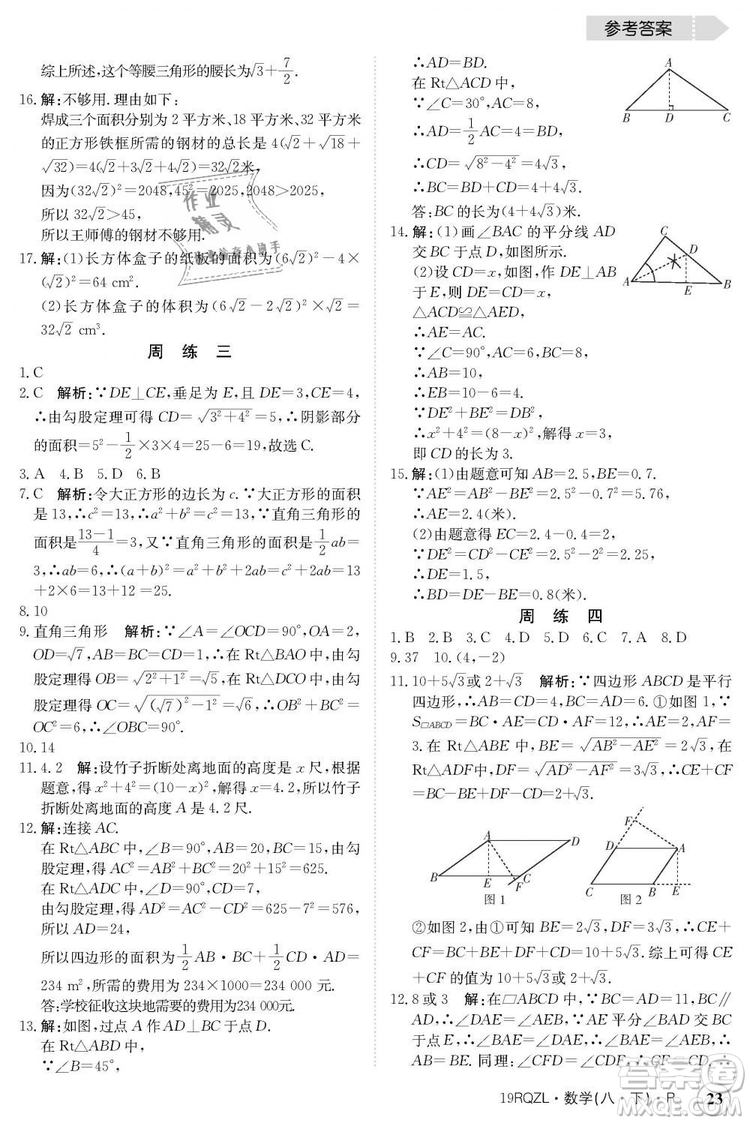 参考答案
综上所述,这个等腰三角形的腰长为√3+7/2.
16.解:不够用.理由如下:
焊成三个面积分别为2平方米、18平方米、32平方米
的正方形铁框所需的钢材的总长是4(√2+√18+
√32)=4(√2+3√2+4√2)=32√2(米).
因为(32√2)²=2048,45²=2025,2048>2025,
所以32√2>45,
所以王师傅的钢材不够用.
17.解:(1)长方体盒子的纸板的面积为(6√2)²-4×
(√2)²=64 cm².
(2)长方体盒子的体积为(6√2-2√2)²×√2=
32√2 cm³.
周 练 三
1.C
2.C 解析:∵DE⊥CE,垂足为E,且DE=3,CE=4,
∴由勾股定理可得CD=√3²+4²=5,∴阴影部分
的面积=5²-1/2×3×4=25-6=19,故选C.
3.A 4.B 5.D 6.B
7.C 解析:令大正方形的边长为c.∵大正方形的面积
是13,∴c²=13,∴a²+b²=c²=13,∵直角三角形的
面积是13-1/4=3,又∵直角三角形的面积是1/2ab=
3,∴ab=6,∴(a+b)²=a²+b²+2ab=c²+2ab=13
+2×6=13+12=25.
8.10
9.直角三角形 解析:∵∠A=∠OCD=90°,OA=2,
OD=√7,AB=CD=1,∴在Rt△BAO中,由勾股
定理求得OB=√2²+1²=√5,在Rt△DCO中,由勾
股定理求得OC=√(√7)²-1²=√6,∴OB²+BC²=
OC²,∴∠OBC=90°.
10.14
11.4.2 解:设竹子折断处离地面的高度是x尺,根据
题意,得x²+4²=(10-x)²,解得x=4.2,所以竹子
折断处离地面的高度A是4.2尺.
12.解:连接AC.
在Rt△ABC中,∠B=90°,AB=20,BC=15,由勾股
定理,得AC²=AB²+BC²=20²+15²=625.
在Rt△ADC中,∠D=90°,CD=7,
由勾股定理,得AD²=AC²-CD²=625-7²=576,
所以AD=24,
所以四边形的面积为1/2AB·BC+1/2CD·AD=
234 m²,所需的费用为234×1000=234 000元.
答:学校征收这块地需要的费用为234 000元.
13.解:如图,过点A作AD⊥BC于点D.
在Rt△ABD中,
∵∠B=45°,
∴AD=BD.
在Rt△ACD中,
∵∠C=30°,AC=8,
∴AD=1/2AC=4,
∴CD=√8²-4²=4√3,
∴BC=BD+CD=4+4√3.
答:BC的长为(4+4√3)米.
A
B D C
14.解:(1)画∠BAC的平分线AD
交BC于点D,如图所示.
(2)设CD=x,作DE⊥AB
于E,则DE=CD=x,
△ACD≌△AED,
∴AE=AC.
∵∠C=90°,
∴AB=10,
∴EB=10-6=4.
∵DE²+BE²=DB²,
∴x²+4²=(8-x)²,解得x=3.
即CD的长为3.
C
D
A E B
15.解:(1)由题意可知AB=2.5,BE=0.7.
∵AE²=AB²-BE²=2.5²-0.7²=5.76,
∴AE=2.4(米).
(2)由题意得EC=2.4-0.4=2.
∵DE²=CD²-CE²=2.5²-2²=2.25,
∴DE=1.5.
∴BD=DE-BE=0.8(米).
周 练 四
1.B 2.B 3.D 4.C 5.C 6.D 7.A 8.D
9.37 10.(4,-2)
11.10+5√3或2+√3 解析:∵四边形ABCD是平行
四边形,∴AB=CD=5,BC=AD=6.①如图1,∵
S▱ABCD=BC·AE=CD·AF=15,∴AE=5/2,AF=
3.在Rt△ABE中,BE=√AB²-AE²=5√3/2.在
Rt△ADF中,DF=√AD²-AF²=3√3>CD,∴CE+
CF=BC-BE+DF-CD=1+√3/2.
A D
B E F C
图1
F
D A
C B E
图2
②如图2,∵BE=5√3/2,DF=3√3,∴CE+
CF=BC+BE+DF+CD=11+11√3/2.
12.8或3 解:①在▱ABCD中,∵BC=AD=11,BC∥
AD,∴∠DAE=∠AEB.∵AE平分∠BAD交
BC于点E,∴∠BAE=∠DAE,∴∠BAE=∠AEB,
∴AB=BE.同理可得∠CFD=∠CDF,∴CF=CD.
19RQZL·数学(八·下)·R 23
作业
精灵